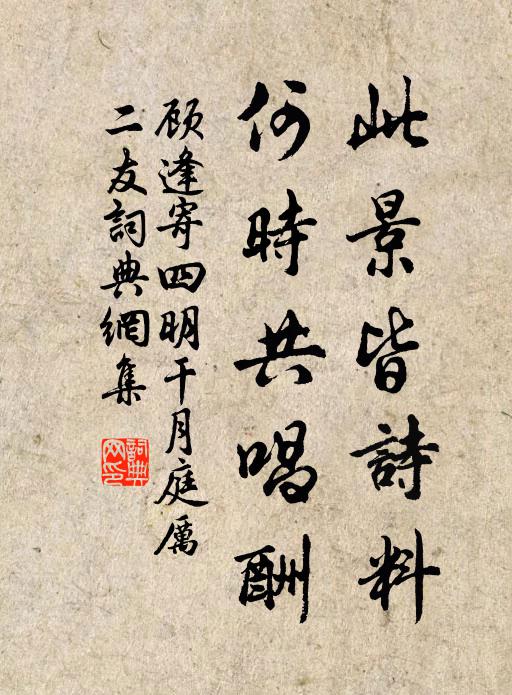 此景皆詩料
何時共唱酬
顾逢寄四明干月庭厲
二友詞典網集
詞典網印